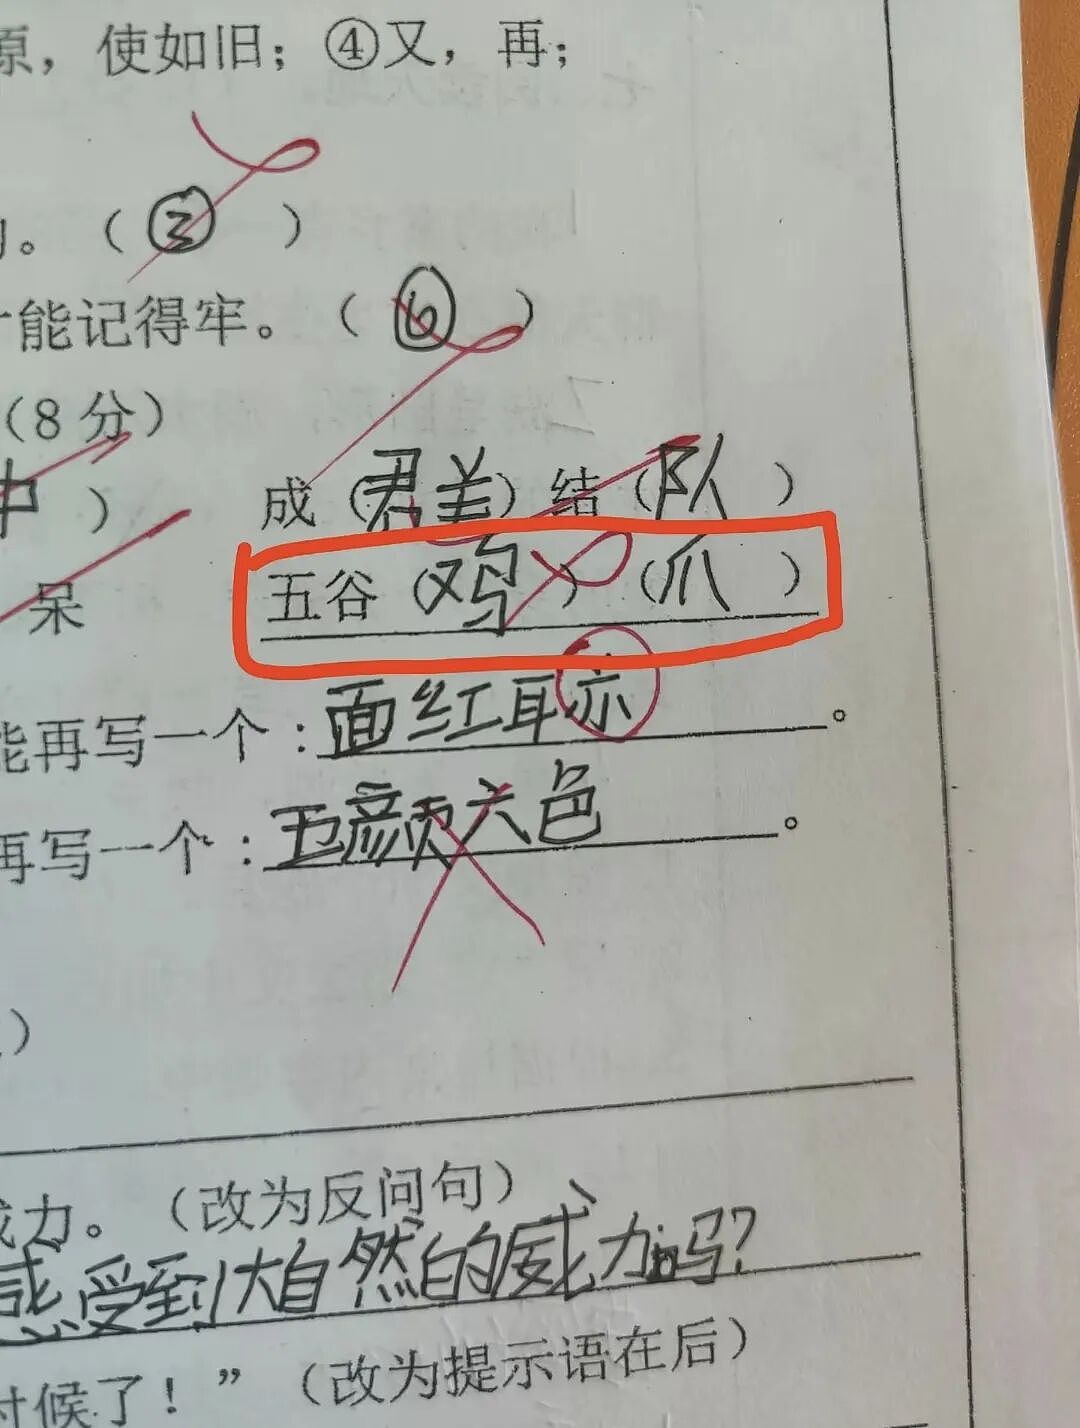 原，使如旧；④又，再；
。（③）
能记得牢。（⑥）
（8分）
中） 成（群）结（队）
呆 五谷（鸡）（爪）
能再写一个：面红耳赤。
再写一个：五颜六色。
）
力。（改为反问句）
感受到大自然的威力吗？
时候了！”（改为提示语在后）